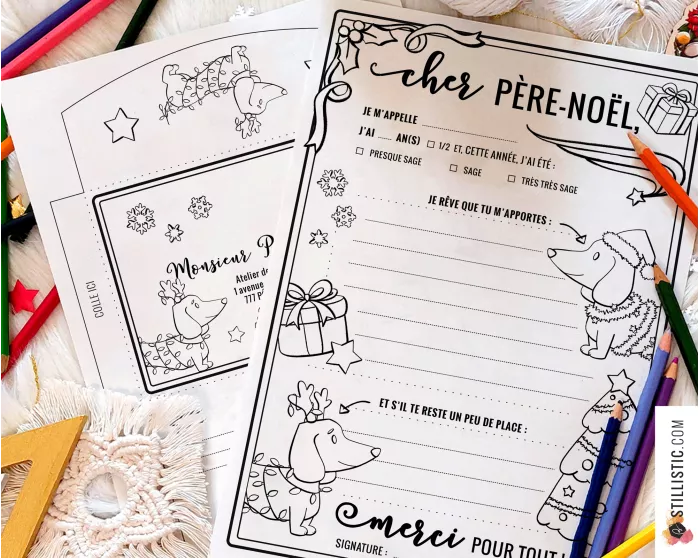 cher PÈRE-NOËL,
JE M'APPELLE
J'AI ...... AN(S) □ 1/2 ET, CETTE ANNÉE, J'AI ÉTÉ :
□ PRESQUE SAGE □ SAGE □ TRÈS TRÈS SAGE
JE RÊVE QUE TU M'APPORTES :
ET S'IL TE RESTE UN PEU DE PLACE :
merci POUR TOUT
SIGNATURE :
COLLE ICI
Monsieur P
Atelier de
1 avenue
777 P
STILLISTIC.COM